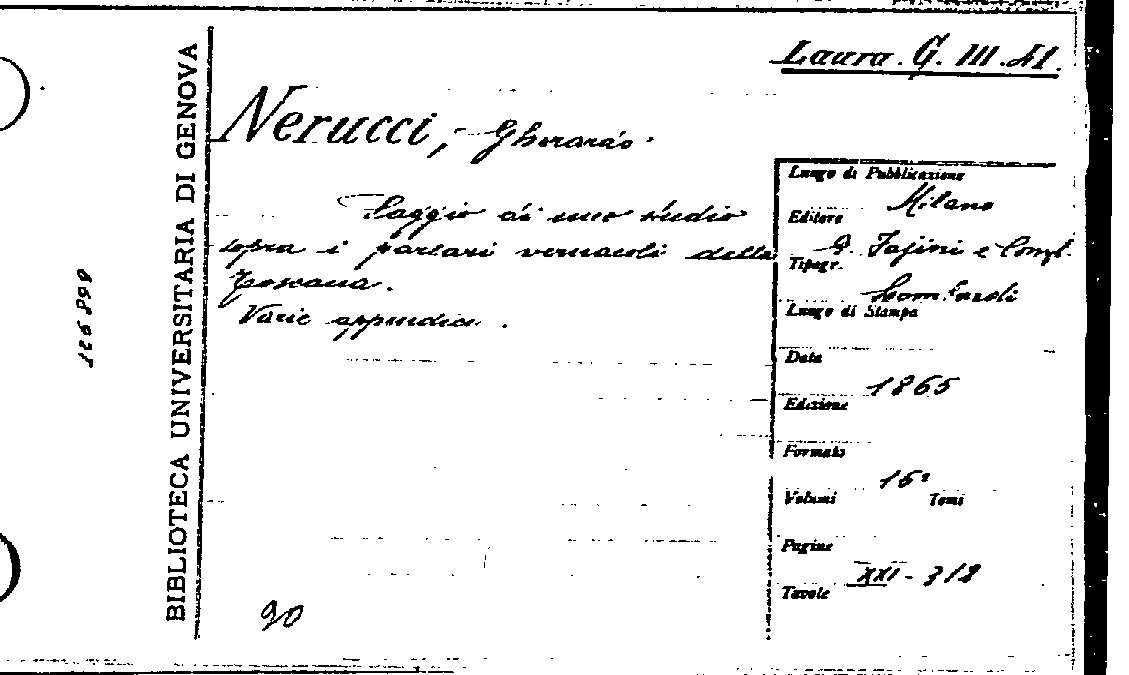 Laura. G. III. 41.
Nerucci, Gherardo.
Saggio di uno studio
sopra i parlari vernacoli della
Toscana.
Varie appendici.
Luogo di Pubblicazione
Milano
Editore
G. Fajini e Comp.
Tipogr.
Luogo di Stampa
Data
1865
Edizione
Formato
16°
Volumi Tomi
Pagine
XXI - 312
Tavole
90
BIBLIOTECA UNIVERSITARIA DI GENOVA